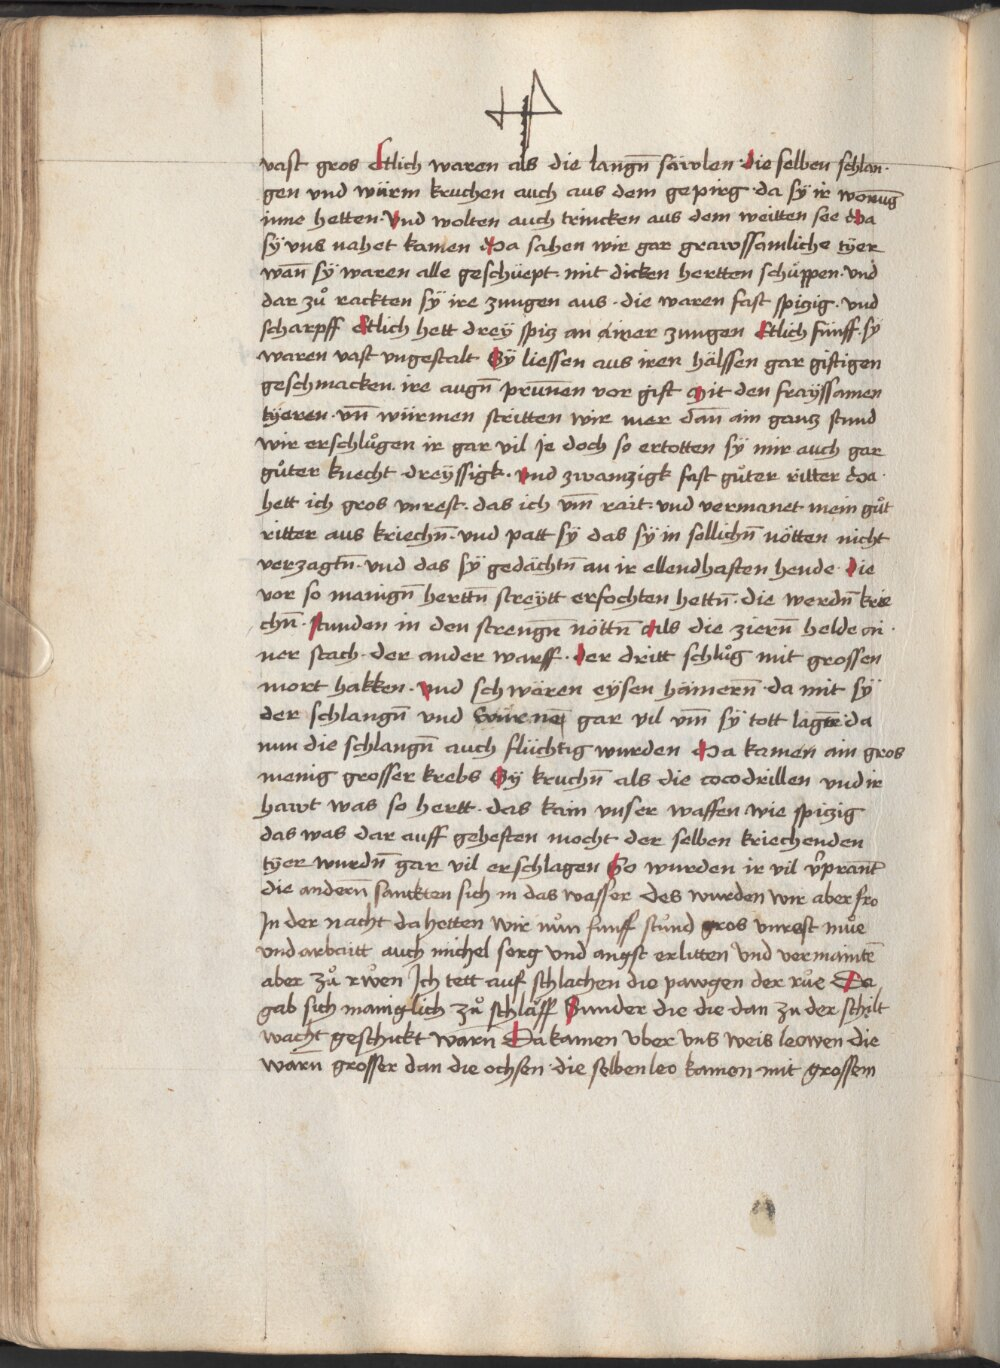 vast gros Etlich waren als die langn̄ säwlen · die selben schlan·
gen und würm kruchen auch aus dem gepirg · da sÿ ir wonūg
inne hetten · Und wolten auch trincken aus dem weitten see da
sÿ vns nahet kamen Da sahen wir gar grawssamliche tÿer
wan̄ sÿ waren alle geschüept · mit dicken hertten schüppen · und
dar zů rackten sÿ ire zungen aus · die waren fast spizig · und
scharpff Etlich hett dreÿ spiz an ainer zungen Etlich fünff · sÿ
waren vast ungestalt Sÿ liessen aus iren hälssen gar giftigen
geschmacken · ire augn̄ prun̄en vor gift Mit den fraÿssamen
tÿeren · vn̄ würmen stritten wir mer dan̄ ain ganz stund
wir erschlůgen ir gar vil Je doch so ertotten sÿ mir auch gar
gůter knecht · dreÿssigk · und zwainzigk fast gůter ritter da ·
hett ich gros unrest · das ich vm̄ rait · und vermanet mein gůt
ritter aus kriechn̄ · und patt sÿ das sÿ in sollichn̄ nötten nicht
verzagtn̄ · und das sÿ gedächtn̄ an ir ellendhaften hende · die
vor so manign̄ herttn̄ streÿtt erfochten hettn̄ · die werdn̄ krie
chn̄ · stunden in den strengn̄ nöttn̄ als die ziern̄ helde ai ·
ner stach · der ander warff · der dritt schlůg mit grossen
mort hakken · und schwären eÿsen hämern̄ · da mit sÿ
der schlangn̄ und gar vil vm̄ sÿ tott lagen̄ da
nun die schlangn̄ auch flüchtig wurden Da kamen ain gros
menig grosser krebs Sÿ kruchn̄ als die cocodrillen und ir
hawt was so hertt · das kain unser waffen wie spizig
das was dar auff geheften mocht der selben kriechenden
tÿer wurdn̄ gar vil erschlagen So wurden ir vil v̄prant
die andern̄ sanckten sich in das wasser des wurden wir aber fro
In der nacht da hetten wir nůn funff stůnd gros unrest můe
und arbaitt auch michel sorg und angst erlitten Und vermaintē
aber zů rwen Ich tett auf schlachen die pawgen der růe Da
gab sich maniglich zů schlaff Sunder die die dan zu der schilt
wacht geschickt warn̄ Da kamen vber vns weis leowen die
warn̄ grosser dan die ochsen · die selben leo kamen mit grossem